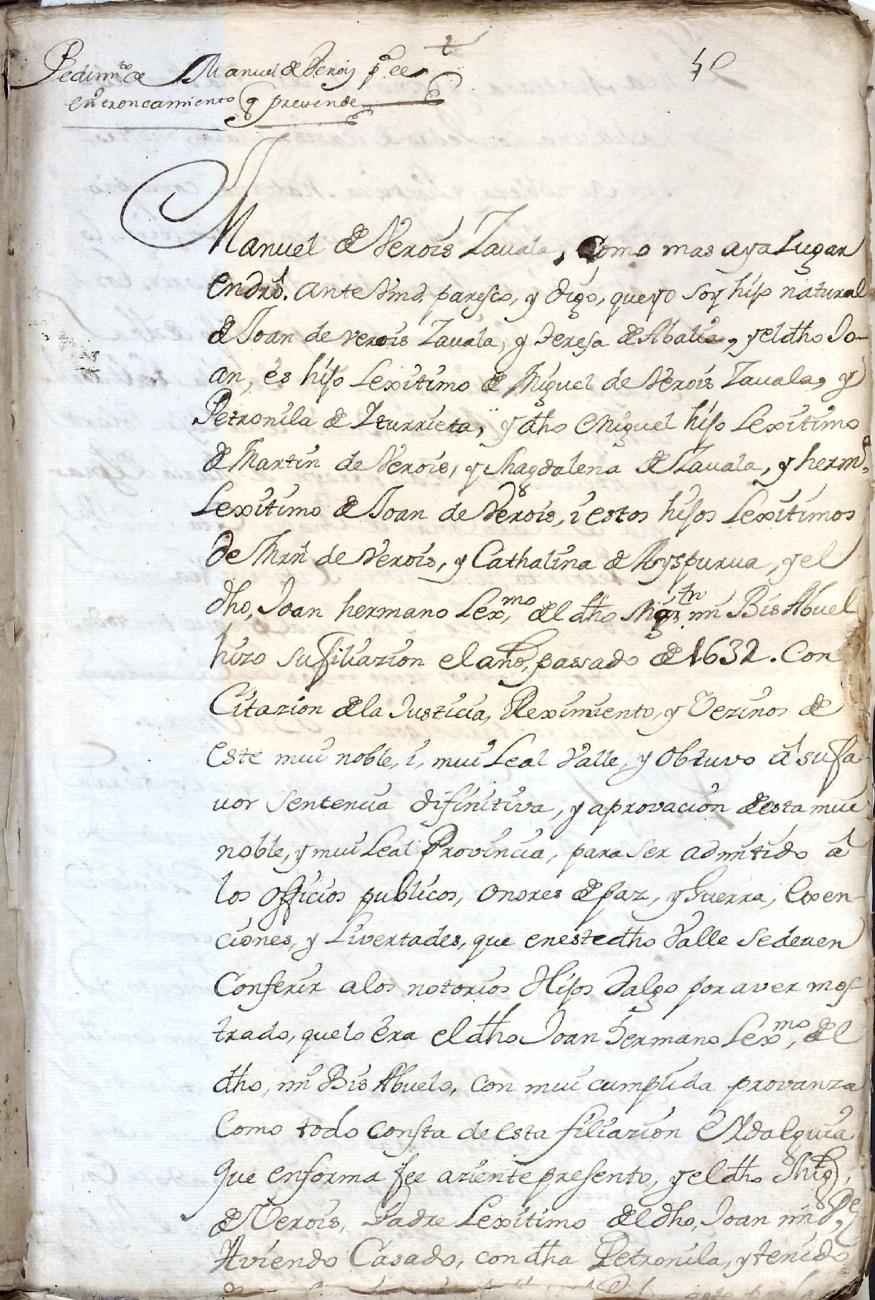 Pedimto de Manuel de Verois pa el
entroncamiento q pretende
Manuel de Verois Zavala, Como mas aya Lugar
endro. ante Vmd. paresco, y digo, que yo soy hijo natural
de Joan de verois Zavala, y Teresa de Abalia, y el dho Jo-
an, es hijo Lexitimo de Miguel de Verois Zavala, y
Petronila de Yturrieta, y dho Miguel hijo Lexitimo
de Martin de Verois, y Magdalena de Zavala, y hermo
Lexitimo de Joan de Verois, i estos hijos Lexitimos
de Mrn de Verois, y Cathalina de Ayspurua, y el
dho, Joan hermano Lexmo, del dho Mrtn mi Bis Abuel
hizo su filiazion el año, passado de 1632. Con
Citazion de la Justicia, Reximiento, y Vezinos de
este mui noble, i, mui Leal Valle, y obtuvo a su fa
uor sentencia difinitiva, y aprovacion de esta mui
noble, y mui Leal Provincia, para ser admitido a
los officios publicos, onores de paz, y Guerra, Exen-
ciones, y Livertades, que en este dho Valle se deven
Conferir a los notorios Hijos Dalgo por aver mos-
trado, que lo era el dho Joan Hermano Lexmo, del
dho, mi Bis Abuelo, con mui cumplida provanza
Como todo consta de esta filiazion e Ydalguia
que en forma fee aziente presento, y el dho Migl,
de Verois, Padre Lexitimo del dho, Joan mi Pe
Aviendo Casado, con dha Petronila, y tenido